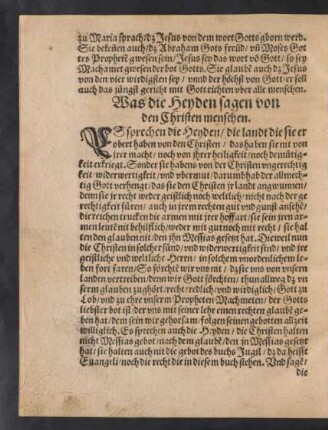 zu Maria sprach/ dz Jesus von dem wort Gotts gborn werd.
Sie bekeñen auch/ dz Abraham Gots freüd/ vñ Moses Got
tes Prophetē gwesen sein/ Jesus sey das wort vō Gott/ so sey
Machamet gwesen der bot Gotts. Sie glaubē auch dz Jesus
von den vier wirdigsten sey/ vnnd der höchst von Gott er soll
auch das jüngst gericht mit Gott richten vber alle menschen.
Was die Heyden sagen von
den Christen menschen.
ES sprechen die Heyden/ die landt die sie er
obert haben von den Christen/ das haben sie nit von
jrer macht/ noch von jhrer heiligkeit/ noch demütig-
keit erkriegt. Sonder sie habens von der Christen vngerechtig
keit widerwertigkeit/ vnd vbermut/ darumb hab der allmech-
tig Gott verhengt/ das sie den Christen jr landt angwunnen/
denn sie jr recht weder geistlich noch weltlich/ nicht nach der ge
rechtigkeit füren/ auch in jrem rechten gut vnd gunst ansehē/
die reichen trucken die armen mit jrer hoffart/ sie sein jren ar-
men leutē nit behilflich/ weder mit gut noch mit recht/ sie hal
ten den glauben nit/ den jhn Messias gesetzt hat. Dieweil nun
die Christen in solcher sünd/ vnd widerwertig sind/ vnd jre
geistliche vnd weltliche Herrn/ in solchem vnordenlichem le-
ben fort faren/ So förchtē wir vns nit/ dz sie vns von vnsern
landen vertreiben denn wir Gott förchten/ thun allweg dz vn
serm glauben zughört/ recht/ redlich/ vnd wirdiglich/ Gott zu
Lob/ vnd zu ehre vnserm Propheten Machmeten/ der Gotts
liebster bot ist der vns mit seiner lehr einen rechten glaubē ge-
ben hat/ dem sein wir gehorsam/ folgen seinen gebotten allzeit
williglich. Es sprechen auch die Heyden/ die Christen halten
nicht Messias gebot/ nach dem glaubē/ den in Messias gesetzt
hat/ sie halten auch nit die gebot des buchs Jugil/ dz da heisst
Euangeli/ noch die recht die in disem buch stehen. Vnd sagē/
die